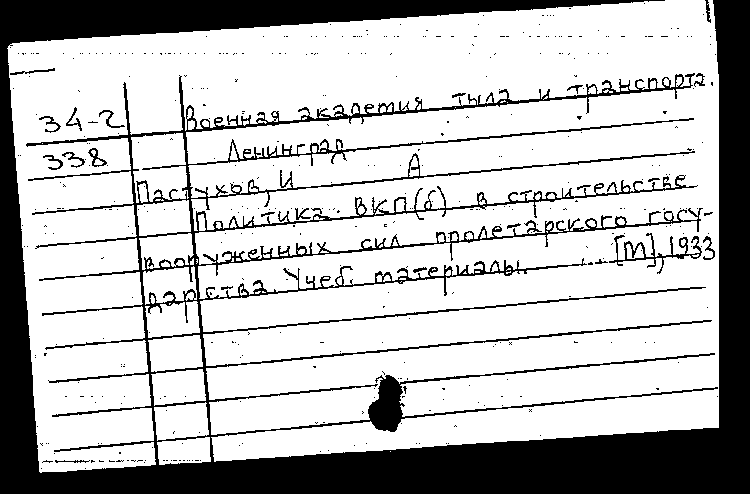 34-2 Военная академия тыла и транспорта.
338 Ленинград
Пастухов, И А
Политика ВКП(б) в строительстве
вооруженных сил пролетарского госу-
дарства. Учеб. материалы. ... [М], 1933